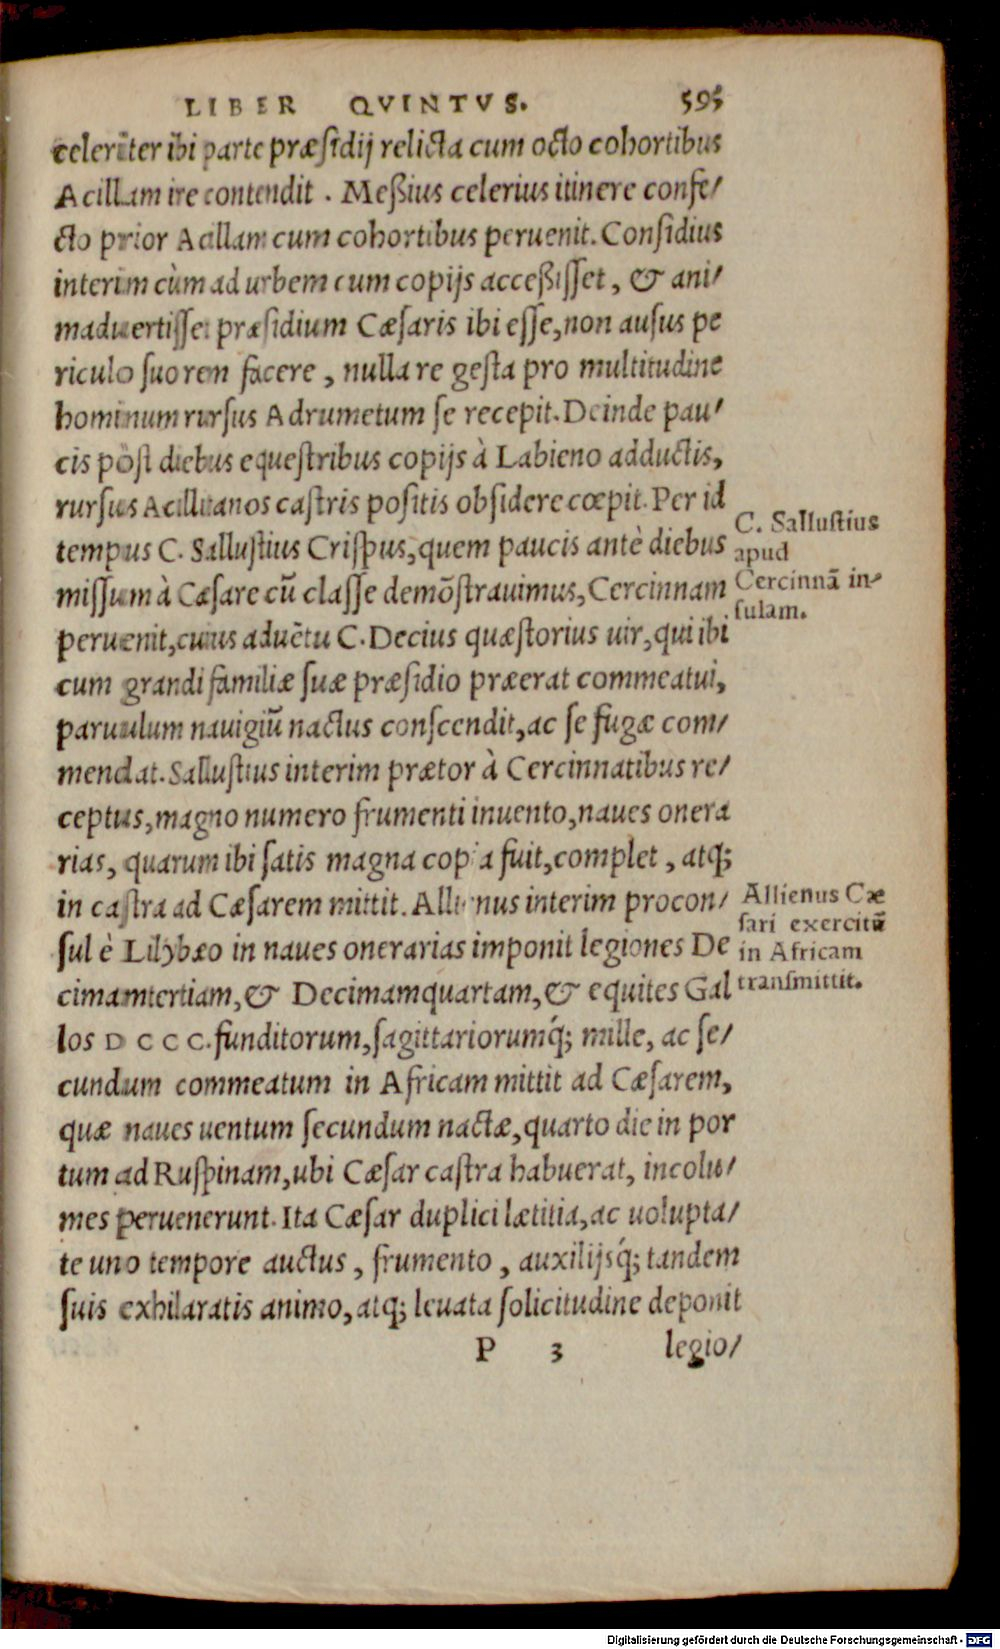 LIBER QVINTVS. 595
celeriter ibi parte præsidij relicta cum octo cohortibus
Acillam ire contendit. Meßius celerius itinere confe/
cto prior Acillam cum cohortibus peruenit. Considius
interim cùm ad urbem cum copijs acceßisset, & ani/
maduertisset præsidium Cæsaris ibi esse, non ausus pe
riculo suo rem facere, nulla re gesta pro multitudine
hominum rursus Adrumetum se recepit. Deinde pau/
cis pòst diebus equestribus copijs à Labieno adductis,
rursus Acillitanos castris positis obsidere cœpit. Per id
tempus C. Sallustius Crispus, quem paucis antè diebus
missum à Cæsare cũ classe demõstrauimus, Cercinnam
peruenit, cuius aduẽtu C. Decius quæstorius uir, qui ibi
cum grandi familiæ suæ præsidio præerat commeatui,
paruulum nauigiũ nactus conscendit, ac se fugæ com/
mendat. Sallustius interim prætor à Cercinnatibus re/
ceptus, magno numero frumenti inuento, naues onera
rias, quarum ibi satis magna copia fuit, complet, atq;
in castra ad Cæsarem mittit. Allienus interim procon/
sul è Lilybæo in naues onerarias imponit legiones De
cimamtertiam, & Decimamquartam, & equites Gal
los D C C C. funditorum, sagittariorumq́; mille, ac se/
cundum commeatum in Africam mittit ad Cæsarem,
quæ naues uentum secundum nactæ, quarto die in por
tum ad Ruspinam, ubi Cæsar castra habuerat, incolu/
mes peruenerunt. Ita Cæsar duplici lætitia, ac uolupta/
te uno tempore auctus, frumento, auxilijsq́; tandem
suis exhilaratis animo, atq; leuata solicitudine deponit
P 3 legio/
C. Sallustius
apud
Cercinnã in/
sulam.
Allienus Cæ
sari exercitũ
in Africam
transmittit.
Digitalisierung gefördert durch die Deutsche Forschungsgemeinschaft - DFG